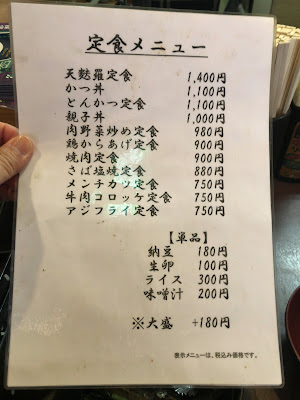 定食メニュー
天麩羅定食 1,400円
かつ丼 1,100円
とんかつ定食 1,100円
親子丼 1,000円
肉野菜炒め定食 980円
鶏からあげ定食 900円
焼肉定食 900円
さば塩焼定食 880円
メンチカツ定食 750円
牛肉コロッケ定食 750円
アジフライ定食 750円
【単品】
納豆 180円
生卵 100円
ライス 300円
味噌汁 200円
※大盛 +180円
表示メニューは、税込み価格です。